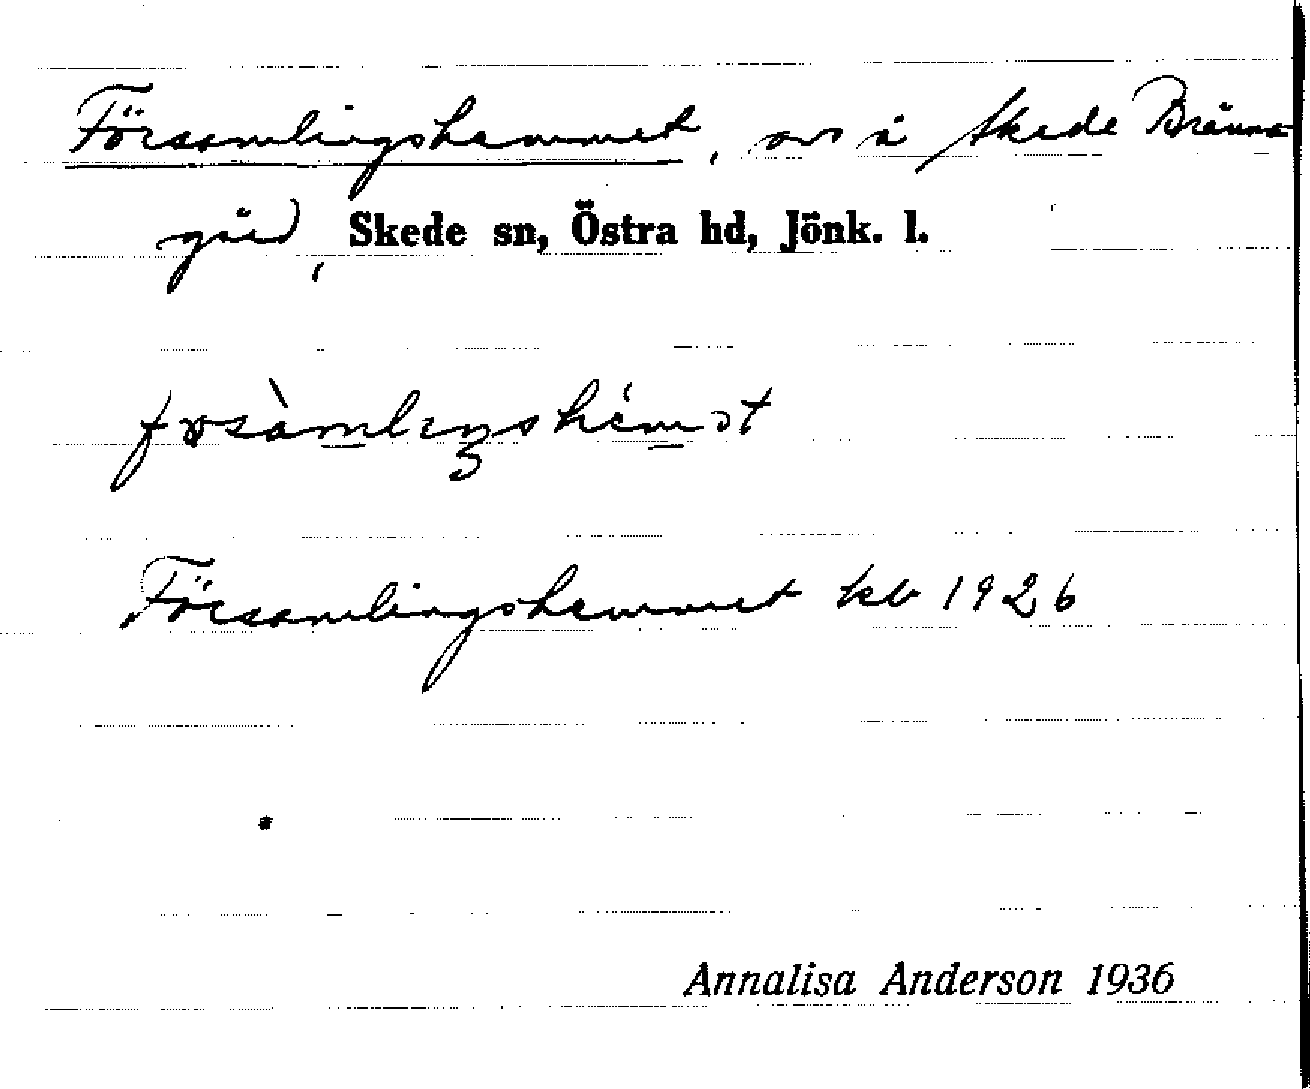 Församlingshemmet, avs å Skede Bränna
gård, Skede sn, Östra hd, Jönk. l.
Församlingshemmet kb 1926
Annalisa Anderson 1936